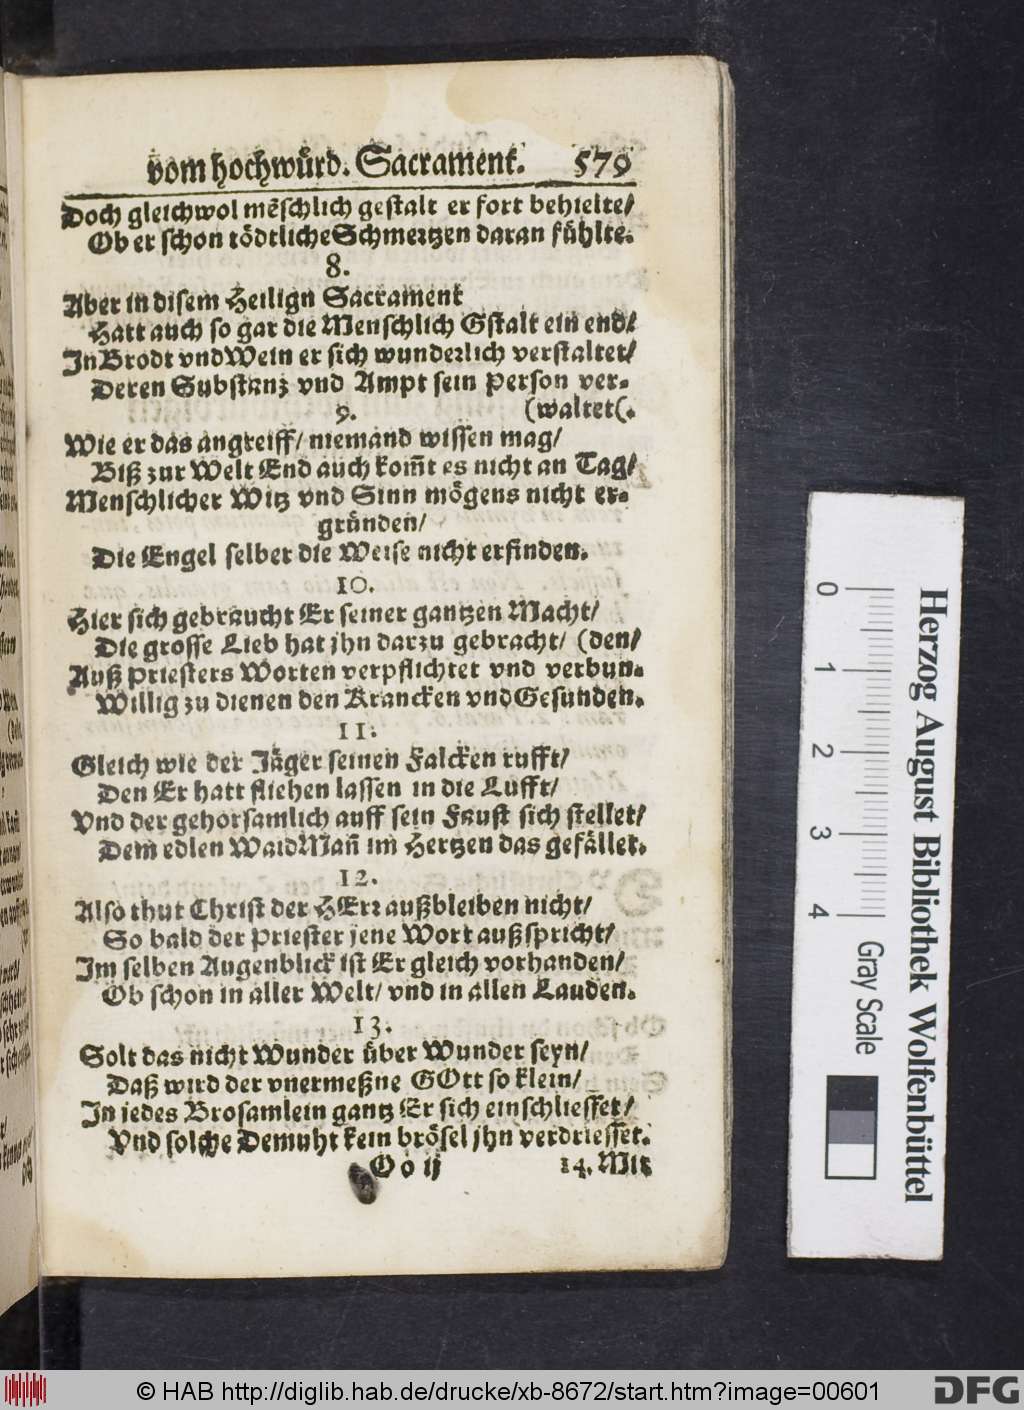 vom hochwürd. Sacrament. 579
Doch gleichwol mẽschlich gestalt er fort behielte/
Ob er schon tödtliche Schmertzen daran fühlte.
8.
Aber in disem Heilign Sacrament
Hatt auch so gar die Menschlich Gstalt ein end/
In Brodt vnd Wein er sich wunderlich verstaltet/
Deren Substanz vnd Ampt sein Person ver-
9. (waltet(.
Wie er das angreiff/ niemand wissen mag/
Biß zur Welt End auch kom̃t es nicht an Tag/
Menschlicher Witz vnd Sinn mögens nicht er-
gründen/
Die Engel selber die Weise nicht erfinden.
10.
Hier sich gebraucht Er seiner gantzen Macht/
Die grosse Lieb hat jhn darzu gebracht/ (den/
Auß Priesters Worten verpflichtet vnd verbun-
Willig zu dienen den Krancken vnd Gesunden.
11.
Gleich wie der Jäger seinen Falcken rufft/
Den Er hatt fliehen lassen in die Lufft/
Vnd der gehorsamlich auff sein Faust sich stellet/
Dem edlen WaidMañ im Hertzen das gefället.
12.
Also thut Christ der HErr außbleiben nicht/
So bald der Priester jene Wort außspricht/
Im selben Augenblick ist Er gleich vorhanden/
Ob schon in aller Welt/ vnd in allen Landen.
13.
Solt das nicht Wunder über Wunder seyn/
Daß wird der vnermeßne GOtt so klein/
In jedes Brosamlein gantz Er sich einschliesset/
Vnd solche Demuht kein brösel jhn verdriesset.
Oo ij 14. Mit
0 1 2 3 4
Gray Scale
Herzog August Bibliothek Wolfenbüttel
© HAB http://diglib.hab.de/drucke/xb-8672/start.htm?image=00601
DFG